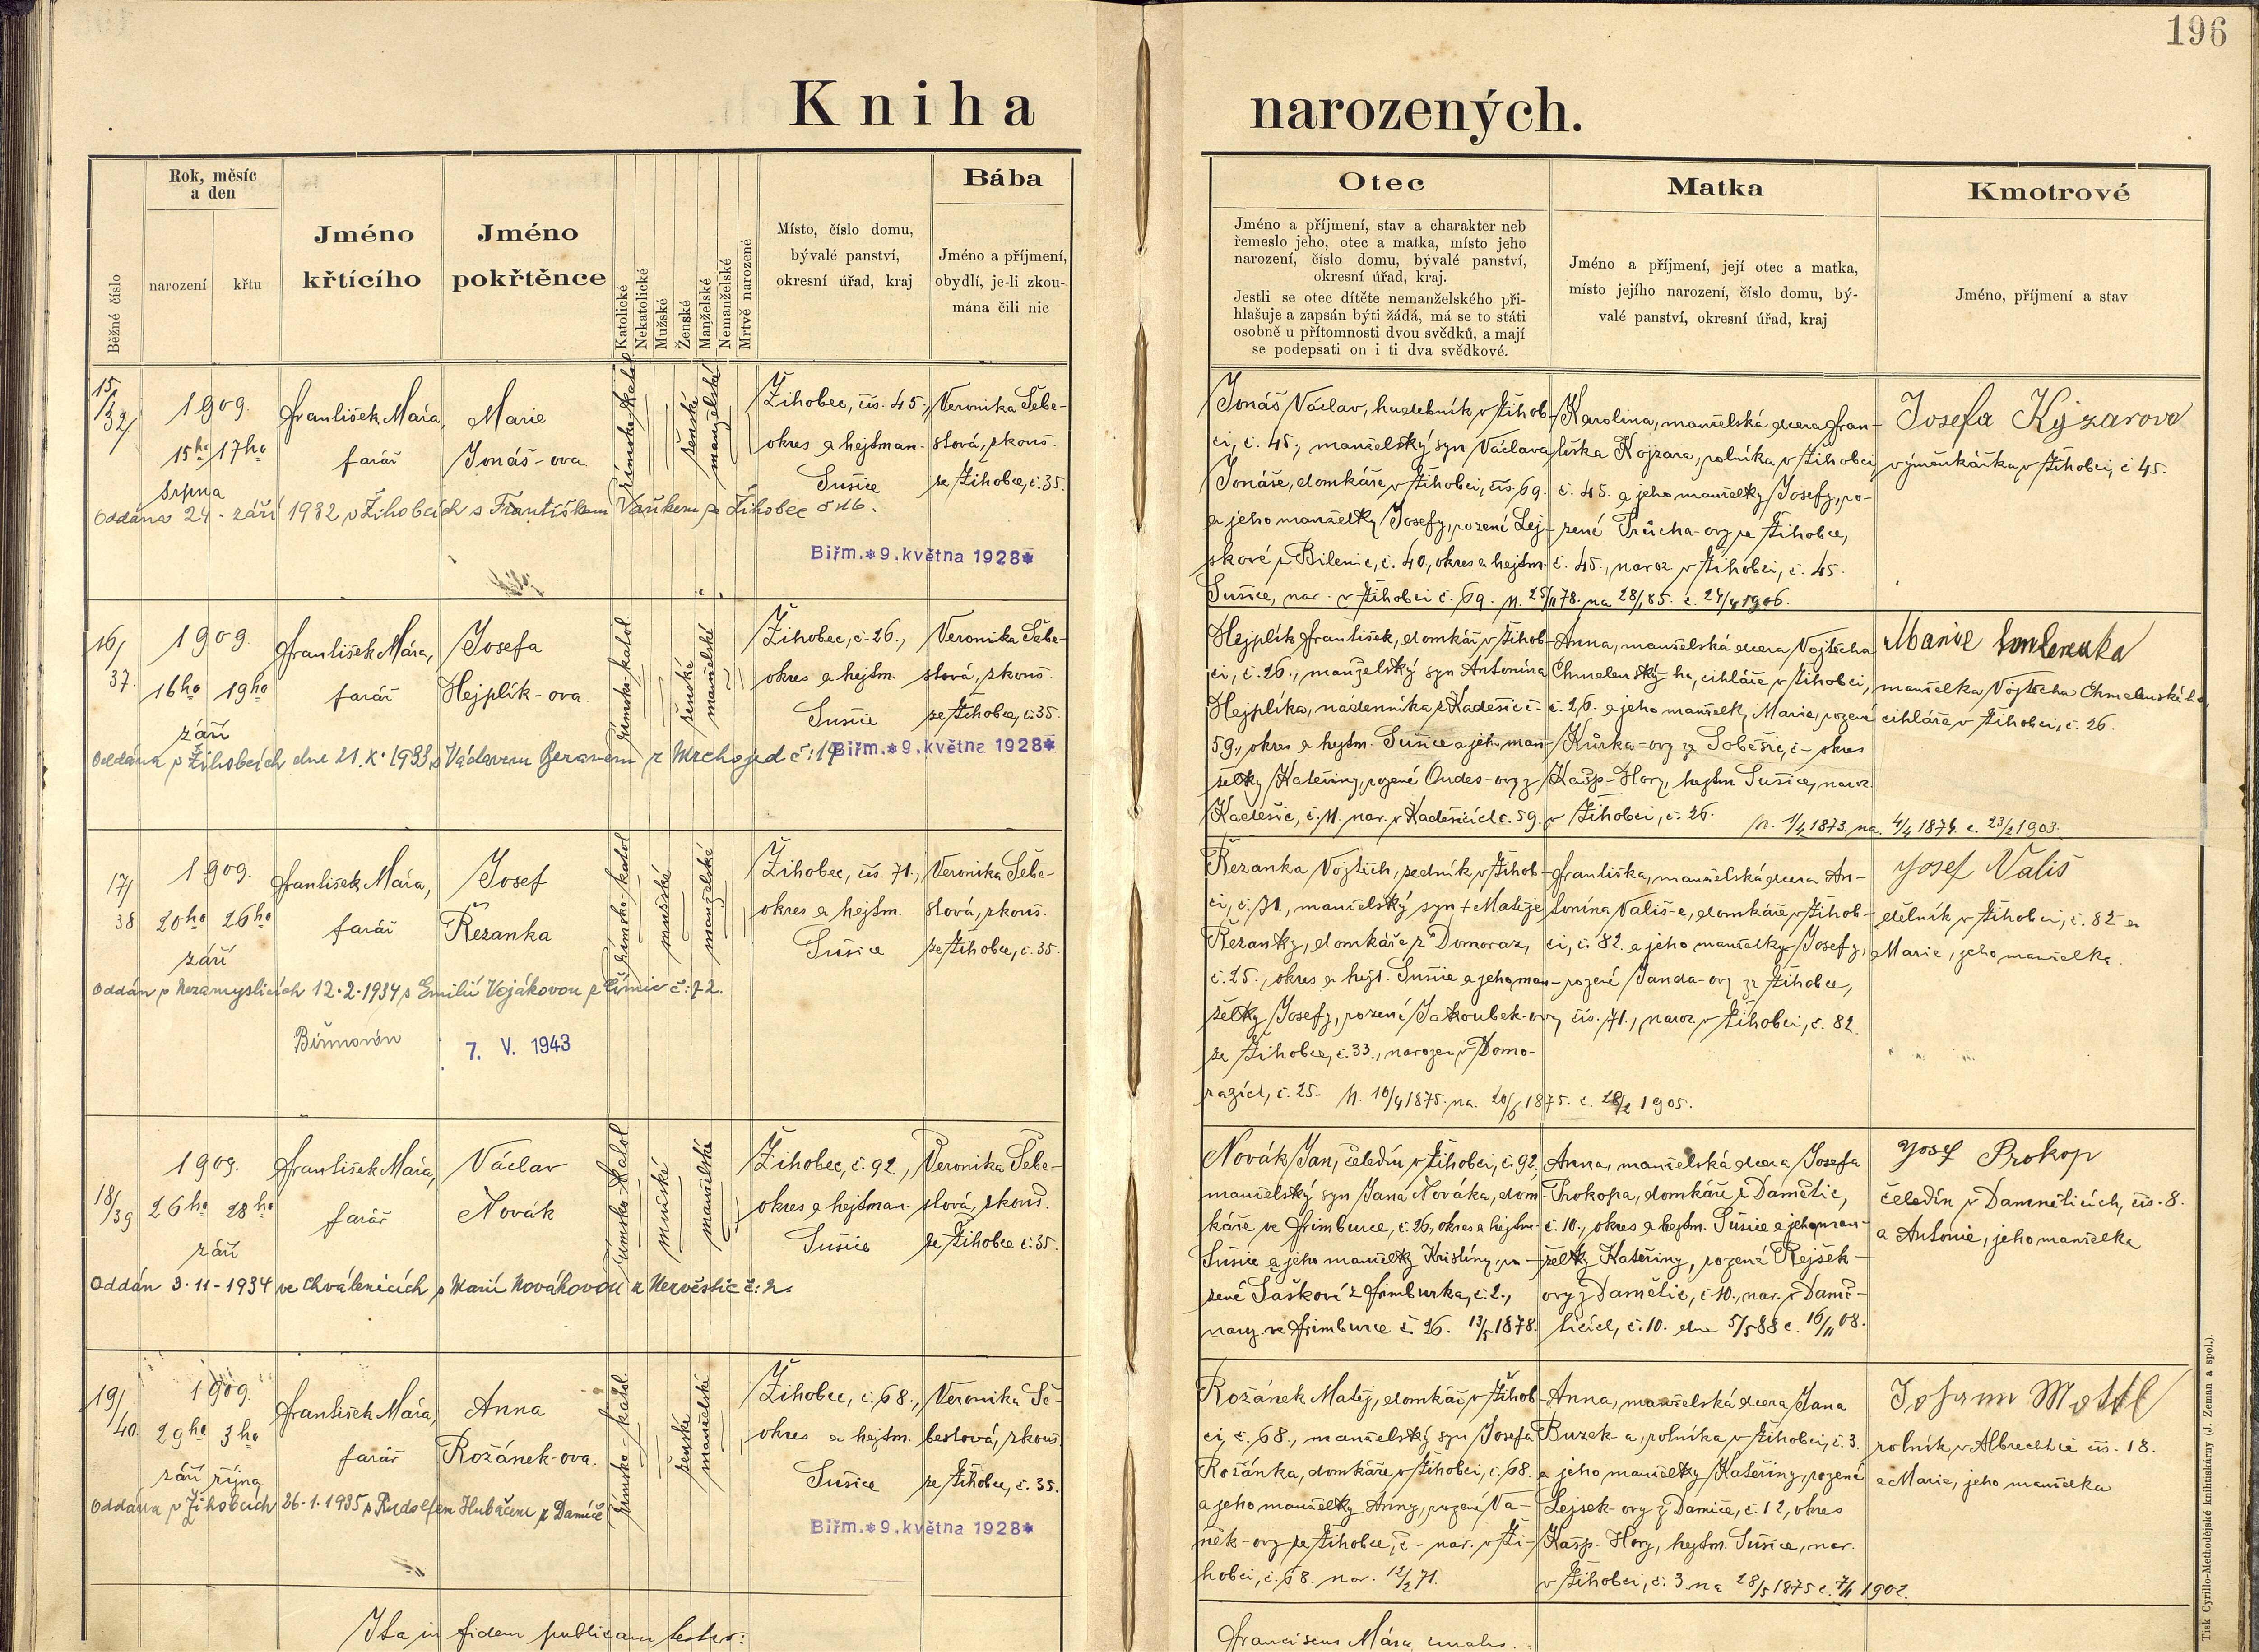 196
Kniha narozených.
Běžné číslo
Rok, měsíc
a den
narození
křtu
Jméno
křtícího
Jméno
pokřtěnce
Katolické
Nekatolické
Mužské
Ženské
Manželské
Nemanželské
Mrtvě narozené
Místo, číslo domu,
bývalé panství,
okresní úřad, kraj
Bába
Jméno a příjmení,
obydlí, je-li zkou-
mána čili nic
Otec
Jméno a příjmení, stav a charakter neb
řemeslo jeho, otec a matka, místo jeho
narození, číslo domu, bývalé panství,
okresní úřad, kraj.
Jestli se otec dítěte nemanželského při-
hlašuje a zapsán býti žádá, má se to státi
osobně u přítomnosti dvou svědků, a mají
se podepsati on i ti dva svědkové.
Matka
Jméno a příjmení, její otec a matka,
místo jejího narození, číslo domu, bý-
valé panství, okresní úřad, kraj
Kmotrové
Jméno, příjmení a stav
15/
1909.
15ho 17ho
srpna
František Mára,
farář
Marie
Jonáš-ova
římsko-katol
ženské
manželské
Žihobec, čís. 45.,
okres a hejtman.
Sušice
Veronika Šebe-
stová, zkouš.
ze Žihobce, č. 35.
Oddána 24. září 1932 v Žihobcích s Františkem Vaňkem ze Žihobec
Biřm.*9.května 1928*
Jonáš Václav, hudebník v Žihob-
ci, č. 45., manželský syn Václava
Jonáše, domkáře v Žihobci, čís. 69.
a jeho manželky Josefy, rozené Lej-
skové z Bilenic, č. 40, okres a hejtm.
Sušice, nar. v Žihobci č. 69. n. 25/11 78. na 28/1 85. c. 24/4 1906.
Karolina, manželská dcera Fran-
tiška Kojzara, rolníka v Žihobci,
č. 45. a jeho manželky Josefy, ro-
zené Průcha-ovy ze Žihobce,
č. 45., naroz v Žihobci, č. 45.
Josefa Kyzarova
výměnkářka v Žihobci, č 45.
16/
37.
1909.
16ho 19ho
září
František Mára,
farář
Josefa
Hejplík-ova.
římsko-katol
ženské
manželské
Žihobec, č. 26.,
okres a hejtm.
Sušice
Veronika Šebe-
stová, zkouš.
ze Žihobce, č. 35
Oddána v Žihobcích dne 21. X. 1933 s Václavem Beranem z Mrchojed č: 14
Biřm.*9.května 1928*
Hejplík František, domkář v Žihob-
ci, č. 26., manželský syn Antonína
Hejplíka, nadenníka z Kadešic č.
59., okres a hejtm. Sušice a jeho man-
želky Kateřiny, rozené Oudes-ovy z
Kadešic, č. 11. nar. v Kadešicích č. 59.
Anna, manželská dcera Vojtěcha
Chmelenský-ho, cihláře v Žihobci,
č. 26. a jeho manželky Marie, rozené
Kůrka-ovy ze Soběšic, č – okres
Kašp-Hory, hejtm Sušice, naroz.
v Žihobci, č. 26.
n. 1/4 1873. na. 4/4 1874. c. 23/2 1903.
Marie
manželka Vojtěcha Chmelenského,
cihláře v Žihobci, č. 26.
17/
38
1909.
20ho 26ho
září
František Mára,
farář
Josef
Řezanka
římsko-katol
mužské
manželské
Žihobec, čís. 71.,
okres a hejtm.
Sušice
Veronika Šebe-
stová, zkouš.
ze Žihobce, č. 35.
Oddán v Nezamyslicích 12.2.1934 s Emilií Vojákovou z č: 72.
Biřmován
7. V. 1943
Řezanka Vojtěch, zedník v Žihob-
ci, č. 71., manželský syn + Matěje
Řezanky, domkáře z Domoraz,
č. 25., okres a hejt. Sušice a jeho man-
želky Josefy, rozené Jakoubek-ovy
ze Žihobce, č. 33., narozen v Domo-
razích, č. 25. n. 10/4 1875. na. 20/6 1875. c. 28/2 1905.
Františka, manželská dcera An-
tonína Vališ-e, domkáře v Žihob-
ci, č. 82. a jeho manželky Josefy,
rozené Janda-ovy ze Žihobce,
čís. 71., naroz. v Žihobci, č. 82.
Josef Vališ
dělník v Žihobci, č. 82 a
Marie, jeho manželka.
18/
39
1909.
26ho 28ho
září
František Mára,
farář
Václav
Novák
římsko-katol
mužské
manželské
Žihobec, č. 92.,
okres a hejtman.
Sušice
Veronika Šebe-
stová, zkouš.
ze Žihobce č. 35.
Oddán 3.11-1934 ve Chválenicích s Marií Novákovou z Nezvěstic č: 2.
Novák Jan, čeledín v Žihobci, č. 92,
manželský syn Jana Nováka, dom-
káře ve Frimburce, č. 26, okres a hejtm.
Sušice a jeho manželky Kristíny, ro-
zené Šaškové z Frimburka, č. 2.,
naroz. ve Frimburce č 26. 13/5 1878.
Anna, manželská dcera Josefa
Prokopa, domkáře z Damětic,
č. 10., okres a hejtm. Sušice a jeho man-
želky Kateřiny, rozené Rejšek-
ovy z Damětic, č 10., nar. v Damě-
ticích, č. 10. dne 5/5 88 c. 16/11 08.
Josef Prokop
čeledín v Damněticích, čís. 8.
a Antonie, jeho manželka
19/
40
1909.
29ho 3ho
září října
František Mára,
farář
Anna
Rožánek-ova.
římsko-katol.
ženské
manželské
Žihobec, č. 68.,
okres a hejtm.
Sušice
Veronika Še-
bestová, zkouš.
ze Žihobce, č. 35.
Oddána v Žihobcích 26.1.1935 s Rudolfem Hubáčem z Damíče
Biřm.*9.května 1928*
Rožánek Matěj, domkář v Žihob-
ci, č. 68., manželský syn Josefa
Rožánka, domkáře v Žihobci, č. 68.
a jeho manželky Anny, rozené Va-
něk-ovy ze Žihobce, č – nar. v Ži-
hobci, č. 68. nar. 12/2 71.
Anna, manželská dcera Jana
Buzek-a, rolníka v Žihobci, č. 3.
a jeho manželky Kateřiny, rozené
Lejsek-ovy z Damíče, č. 12, okres
Kašp. Hory, hejtm. Sušice, nar.
v Žihobci, č. 3. na 28/5 1875 c. 7/11 1902.
Johann Mottl
rolník v Albrechtic čís. 18.
a Marie, jeho manželka
Ita in fidem publicam testor:
Franciscus Mára
Tisk Cyrillo-Methodějské knihtiskárny (J. Zeman a spol.).